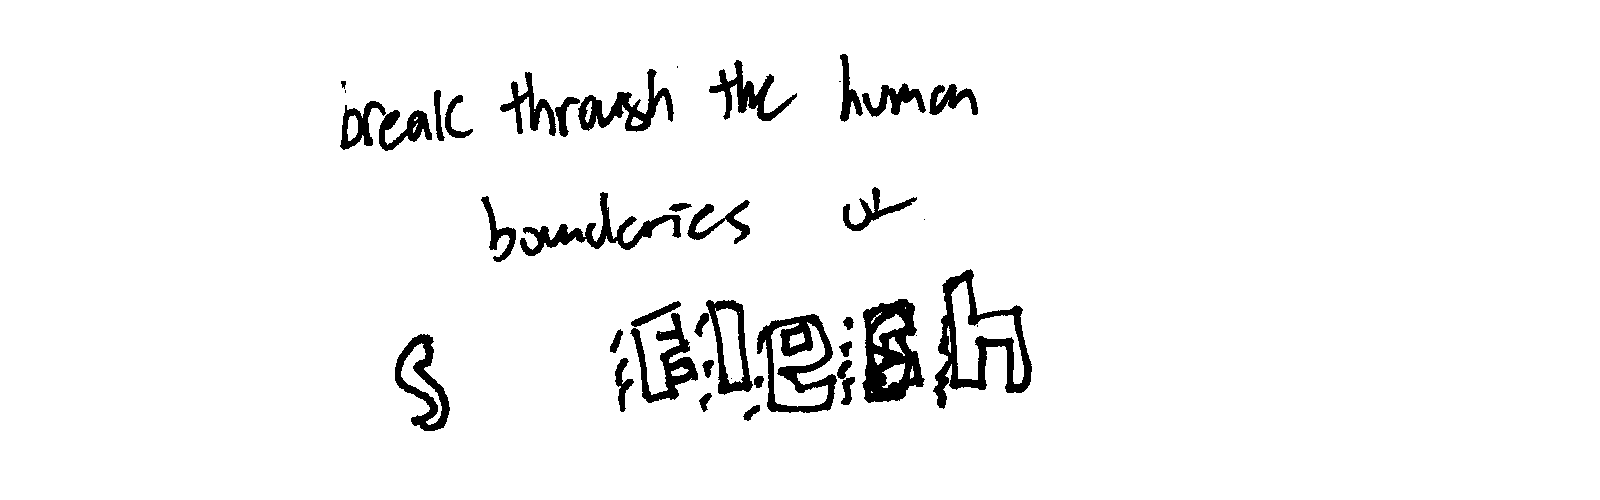 break through the human
boundaries of
S Flesh